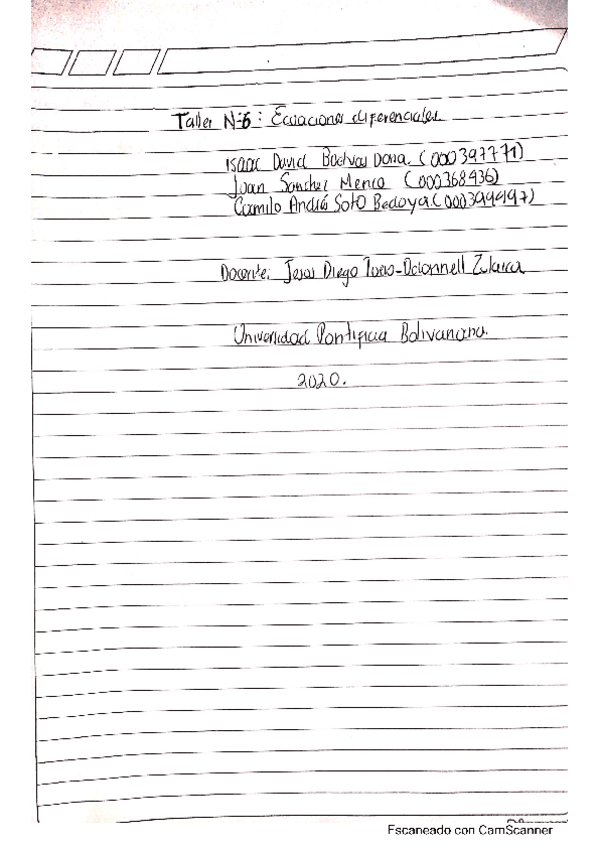 Taller N°6: Ecuaciones diferenciales
Isaac David (000397771)
Juan Sanchez (000368936)
Camilo Andrés Soto Bedoya (000399997)
Docente: Diego
Universidad Pontificia Bolivariana.
2020.
Escaneado con CamScanner